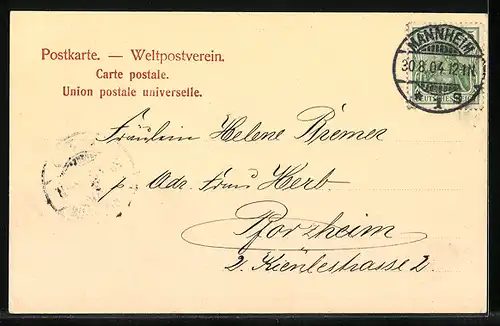 Postkarte. — Weltpostverein.
Carte postale.
Union postale universelle.
MANNHEIM
30.8.04.12-1N.
* 1 g
DEUTSCHES REICH
Fräulein Helene Bremer
p. Adr. Frau Herb.
Pforzheim
2. Kienlestrasse 2.